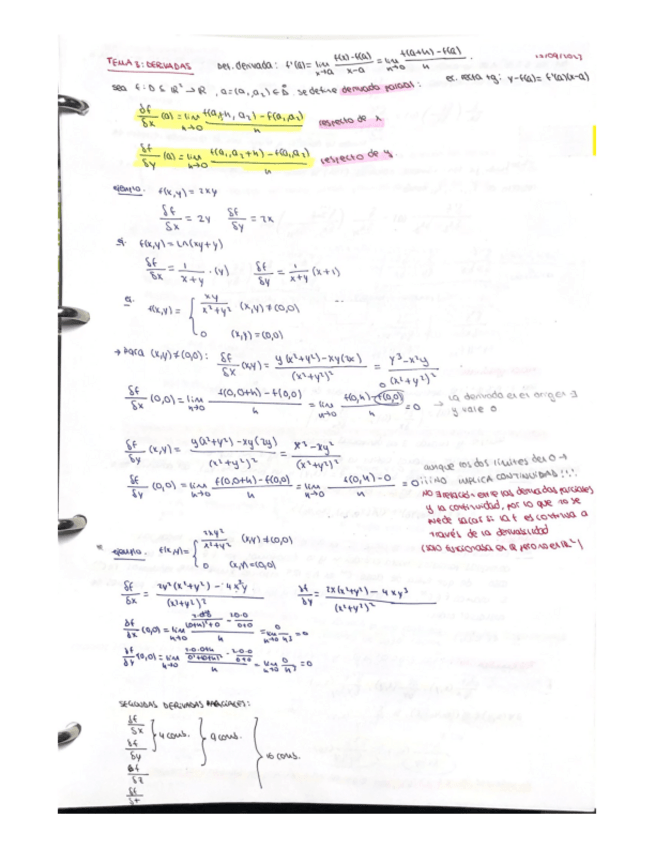 TEMA 3: DERIVADAS Def. derivada: f'(a)= lim x→a f(x)-f(a) / x-a = lim h→0 f(a+h)-f(a) / h
ec. recta tg: y-f(a)= f'(a)(x-a)
sea f: D ⊆ R² → R, a=(a₁,a₂) ∈ D. se define derivada parcial:
δf/δx (a) = lim h→0 f(a₁+h, a₂) - f(a₁,a₂) / h respecto de x
δf/δy (a) = lim h→0 f(a₁, a₂+h) - f(a₁,a₂) / h respecto de y
ejemplo. f(x,y) = 2xy
δf/δx = 2y δf/δy = 2x
ej. f(x,y) = Ln(xy+y)
δf/δx = 1/x+y · (y) δf/δy = 1/x+y (x+1)
ej. f(x,y) = { xy / x²+y² (x,y)≠(0,0)
0 (x,y)=(0,0)
→ Para (x,y)≠(0,0): δf/δx (x,y) = y(x²+y²) - xy(2x) / (x²+y²)² = y³-x²y / (x²+y²)²
δf/δx (0,0) = lim h→0 f(0,0+h) - f(0,0) / h = lim h→0 f(0,h) - f(0,0) / h = 0 → La derivada en el origen ∃
y vale 0
δf/δy (x,y) = y(x²+y²) - xy(2y) / (x²+y²)² = x³-xy² / (x²+y²)²
δf/δy (0,0) = lim h→0 f(0,0+h) - f(0,0) / h = lim h→0 f(0,h) - 0 / h = 0
aunque los dos límites den 0 →
¡¡¡NO IMPLICA CONTINUIDAD!!!
NO ∃ relación entre las derivadas parciales
y la continuidad, por lo que no se
puede sacar si la f es continua a
través de la derivabilidad
(solo funcionaba en R pero no en R²)
ejemplo. f(x,y) = { 2xy² / x²+y² (x,y)≠(0,0)
0 (x,y)=(0,0)
δf/δx = 2y²(x²+y²) - 4x²y / (x²+y²)² δf/δy = 2x(x²+y²) - 4xy³ / (x²+y²)²
δf/δx (0,0) = lim h→0 = lim h→0 0/h³ = 0
δf/δy (0,0) = lim h→0 = lim h→0 0/h³ = 0
SEGUNDAS DERIVADAS PARCIALES:
δf/δx
δf/δy } 4 comb.
δf/δz } 9 comb.
δf/δt } 16 comb.